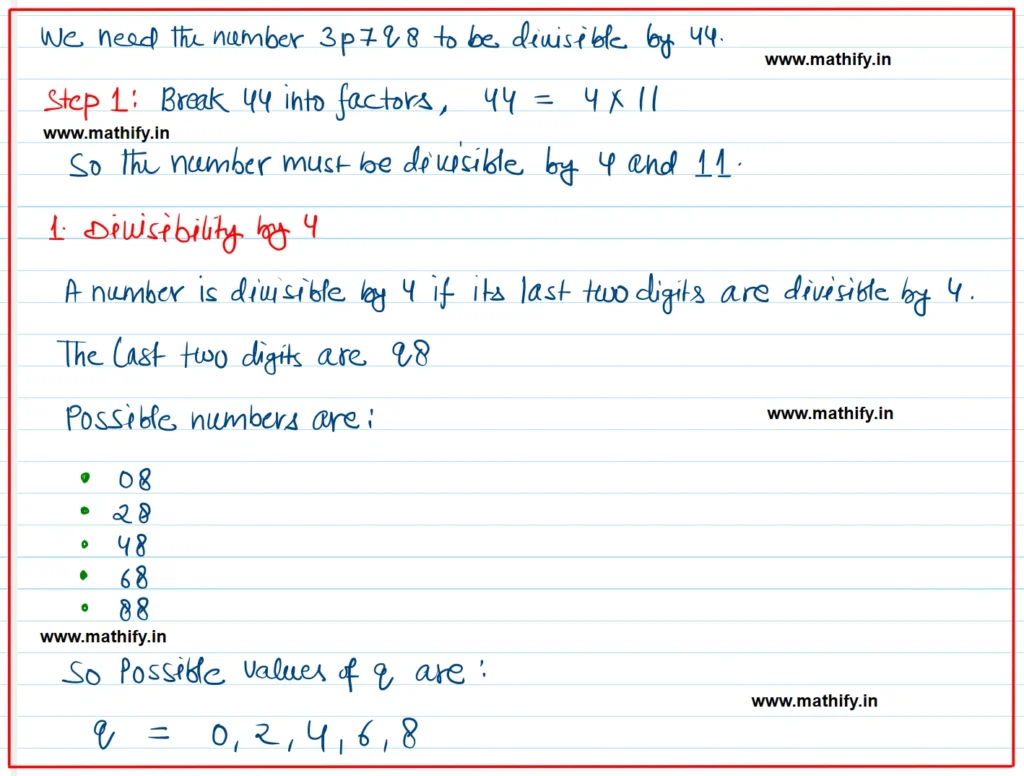 We need the number 3p7q8 to be divisible by 44.
www.mathify.in
Step 1: Break 44 into factors, 44 = 4 x 11
www.mathify.in
So the number must be divisible by 4 and 11.
1. Divisibility by 4
A number is divisible by 4 if its last two digits are divisible by 4.
The last two digits are q8
Possible numbers are:
www.mathify.in
• 08
• 28
• 48
• 68
• 88
www.mathify.in
So Possible values of q are:
www.mathify.in
q = 0, 2, 4, 6, 8